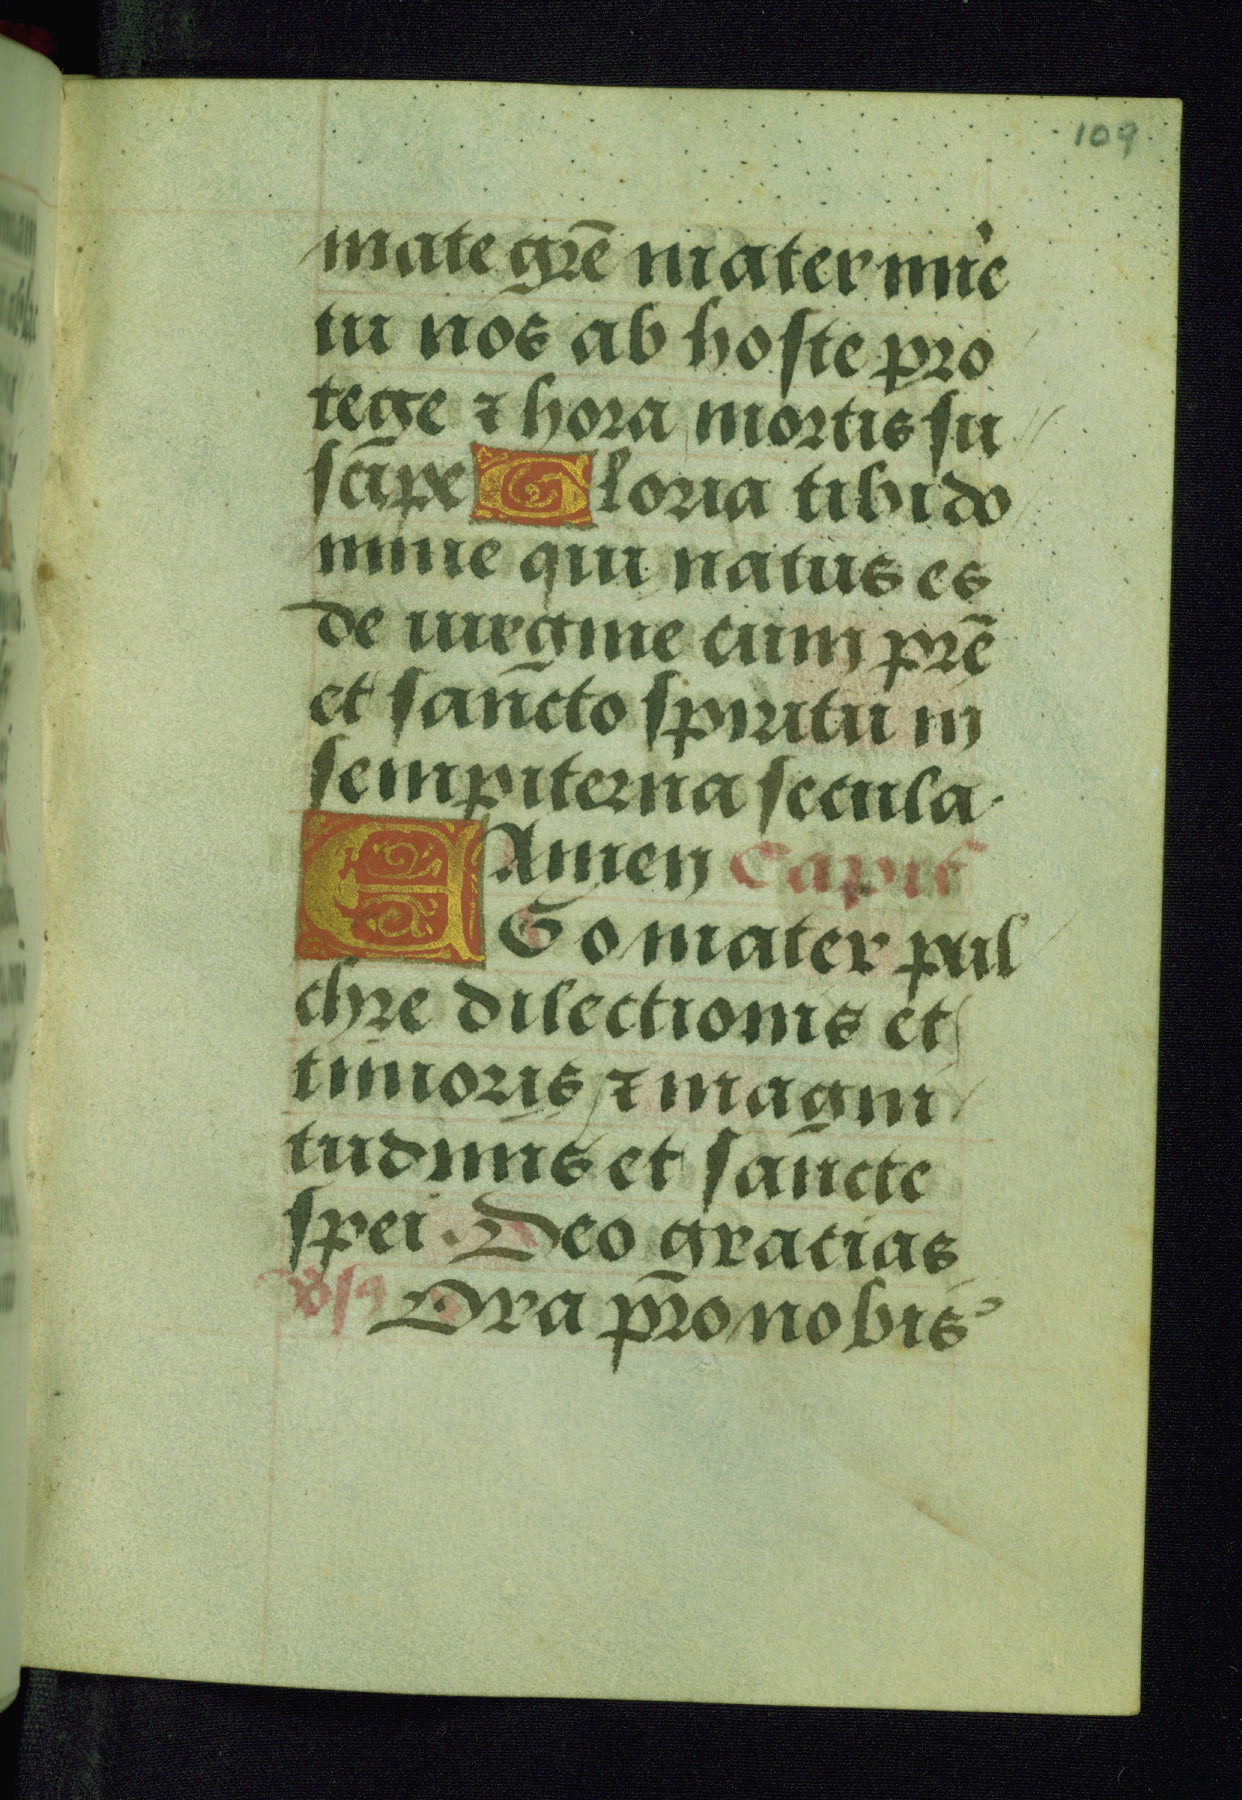 109
mate grē mater mīe
tu nos ab hoste pro
tege ⁊ hora mortis su
scipe Gloria tibi do
mine qui natus es
de uirgine cum prē
et sancto spiritu in
sempiterna secula.
Amen Capitl
EGo mater pul
chre dilectionis et
timoris ⁊ magni
tudinis et sancte
spei. Deo gratias
Ora pro nobis